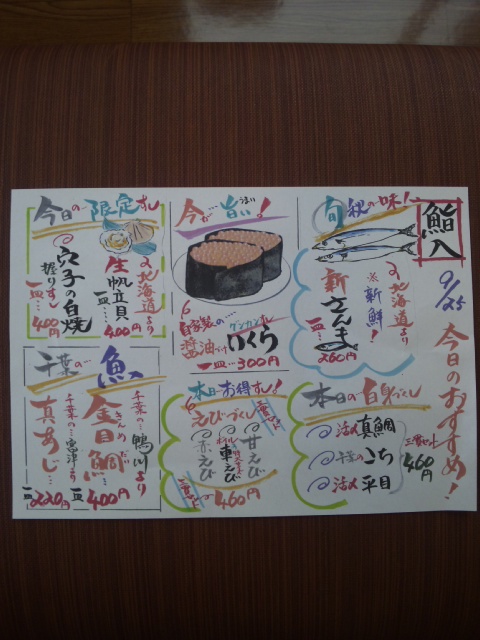 鮨人
9/25
今日のおすすめ!
旬
秋の味!
北海道より
※新鮮!
新さんま
一皿…260円
本日の白身づくし
活〆真鯛
千葉のこち
活〆平目
三巻セット
460円
今が…旨い!
うまい
グンカンすし
自家製の
醤油づけ
いくら
一皿…300円
本日お得すし!
えびづくし
甘えび
車えび
赤えび
460円
今日の…限定すし
北海道より
生帆立貝
一皿…400円
穴子の白焼
握りすし
一皿…400円
千葉の…魚
千葉の…鴨川より
きんめだい
金目鯛
一皿…400円
千葉の…富津より
真あじ…
一皿…220円